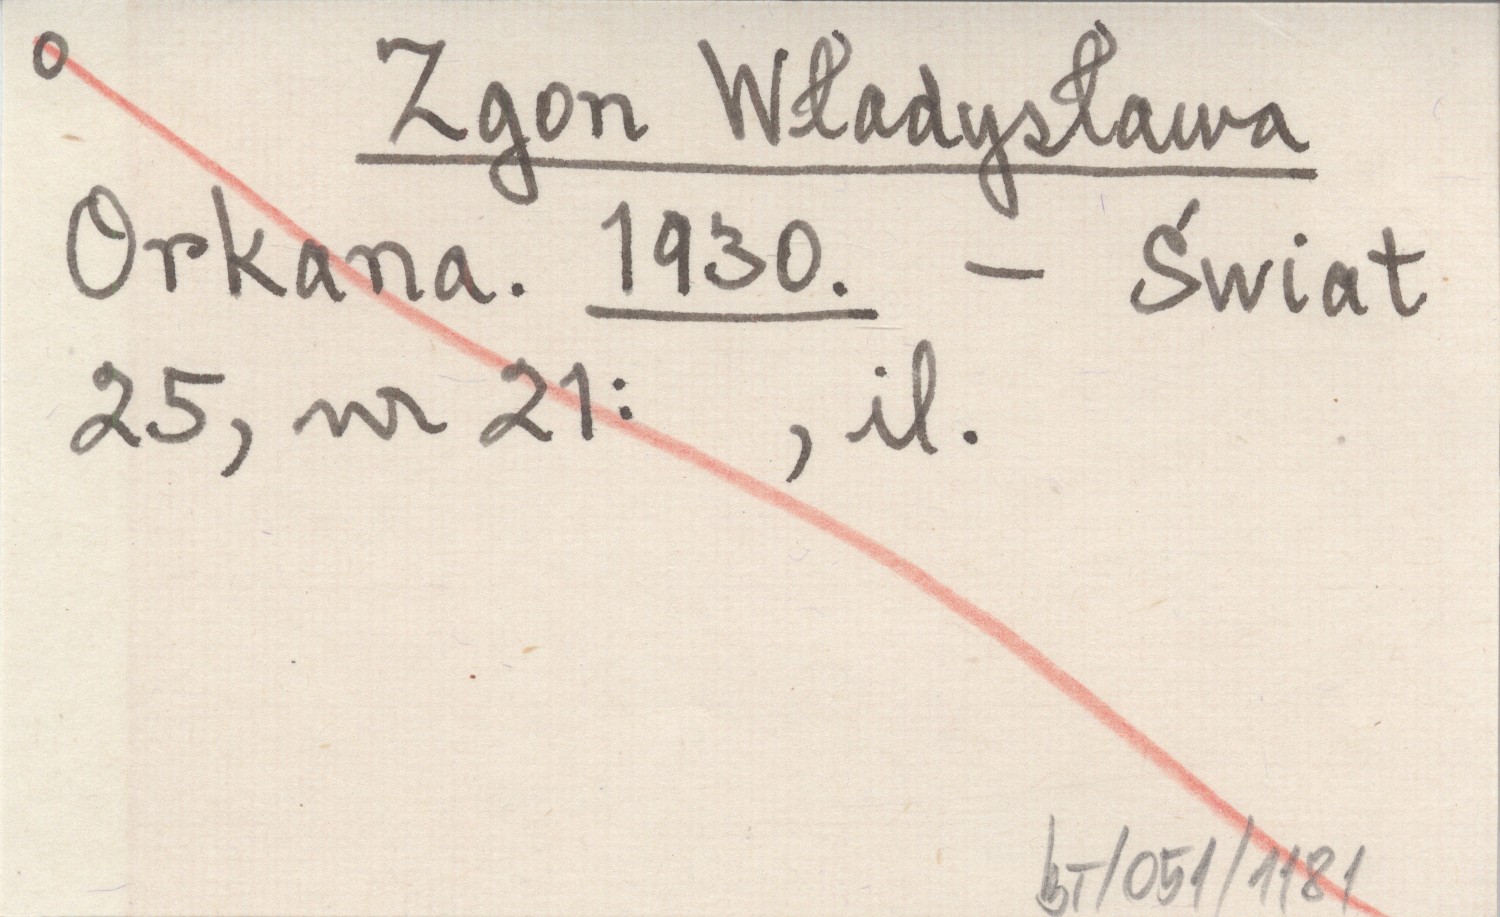 o Zgon Władysława
Orkana. 1930. – Świat
25, nr 21: , il.
bT/051/1181